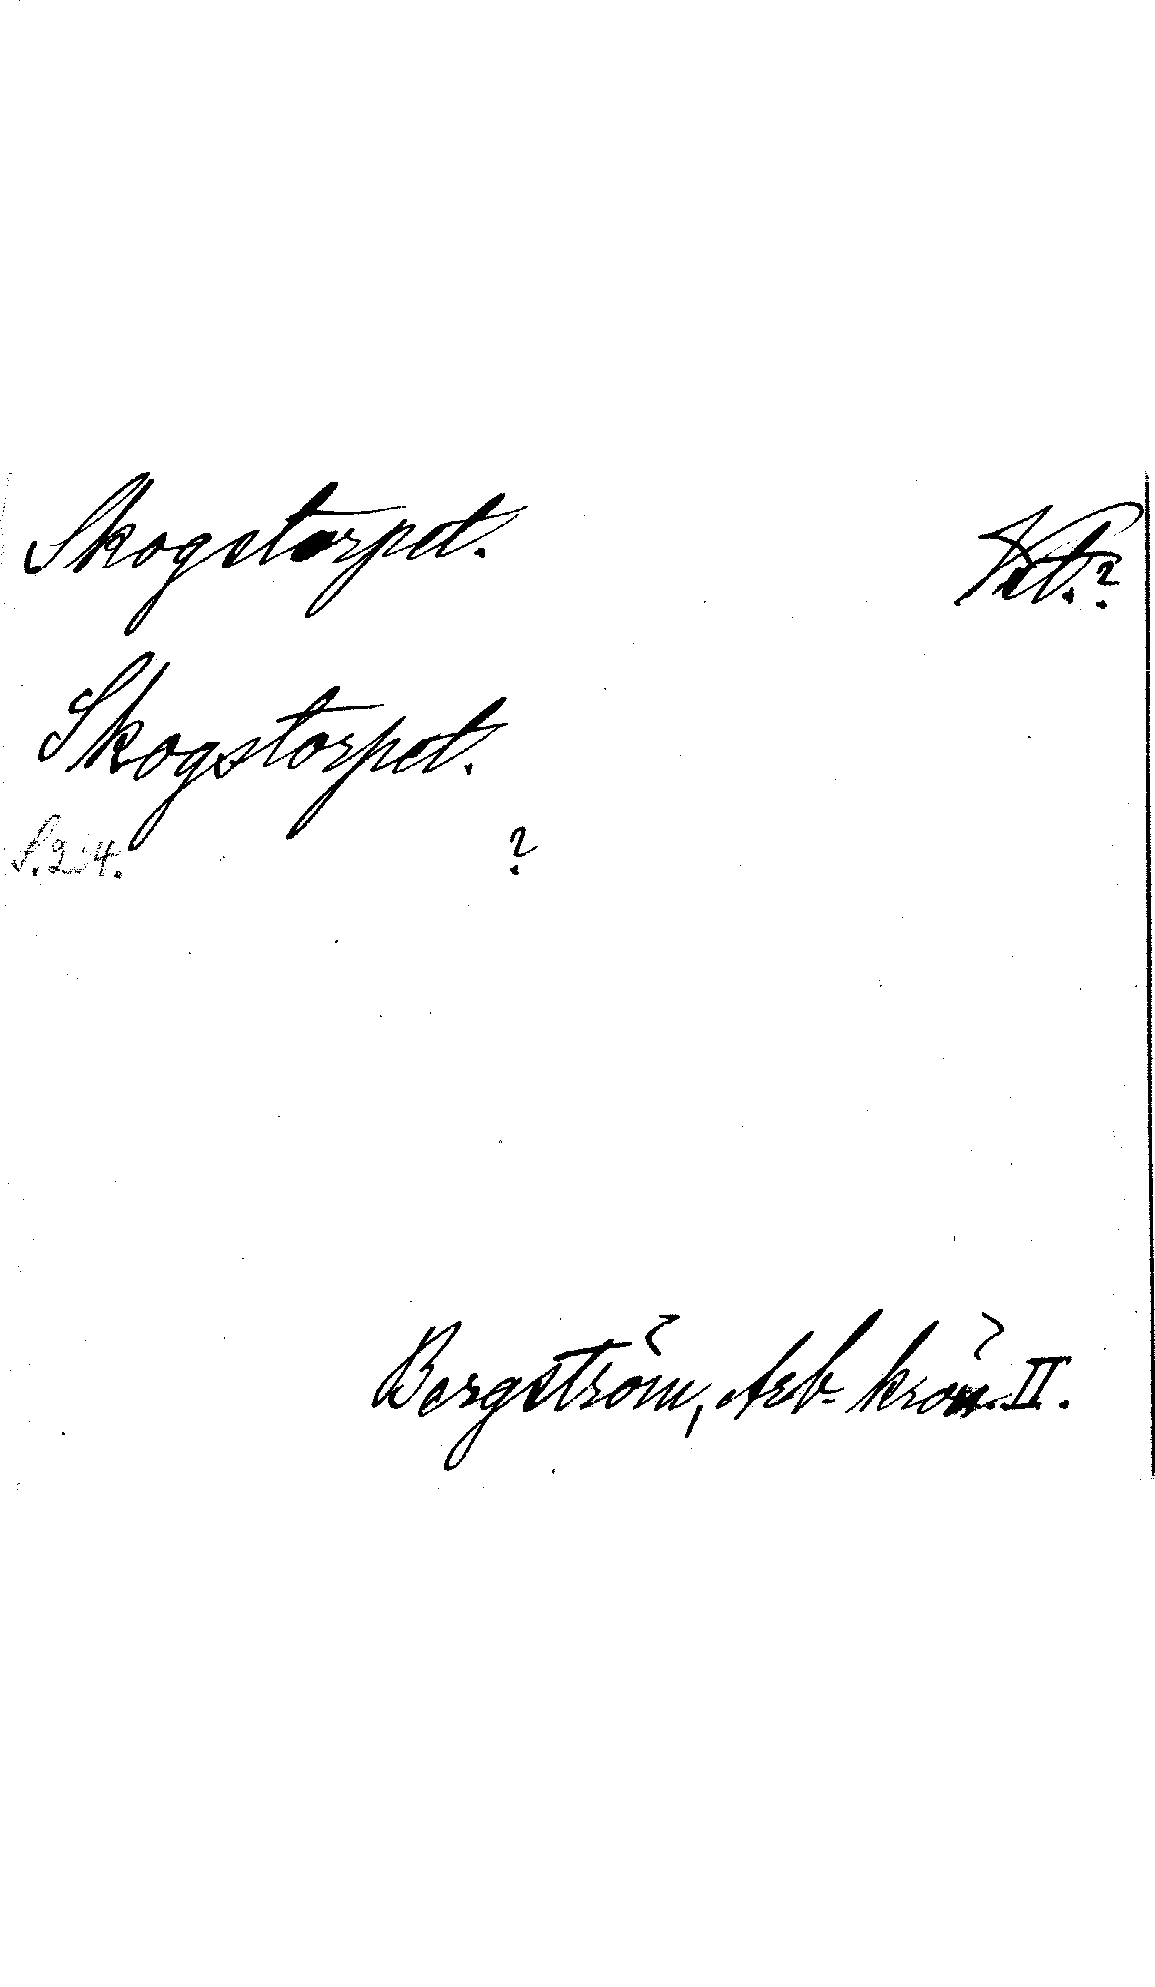 Skogstorpet. Vst.?
Skogstorpet.
S. 234. ?
Bergström, Arb. krön. II.